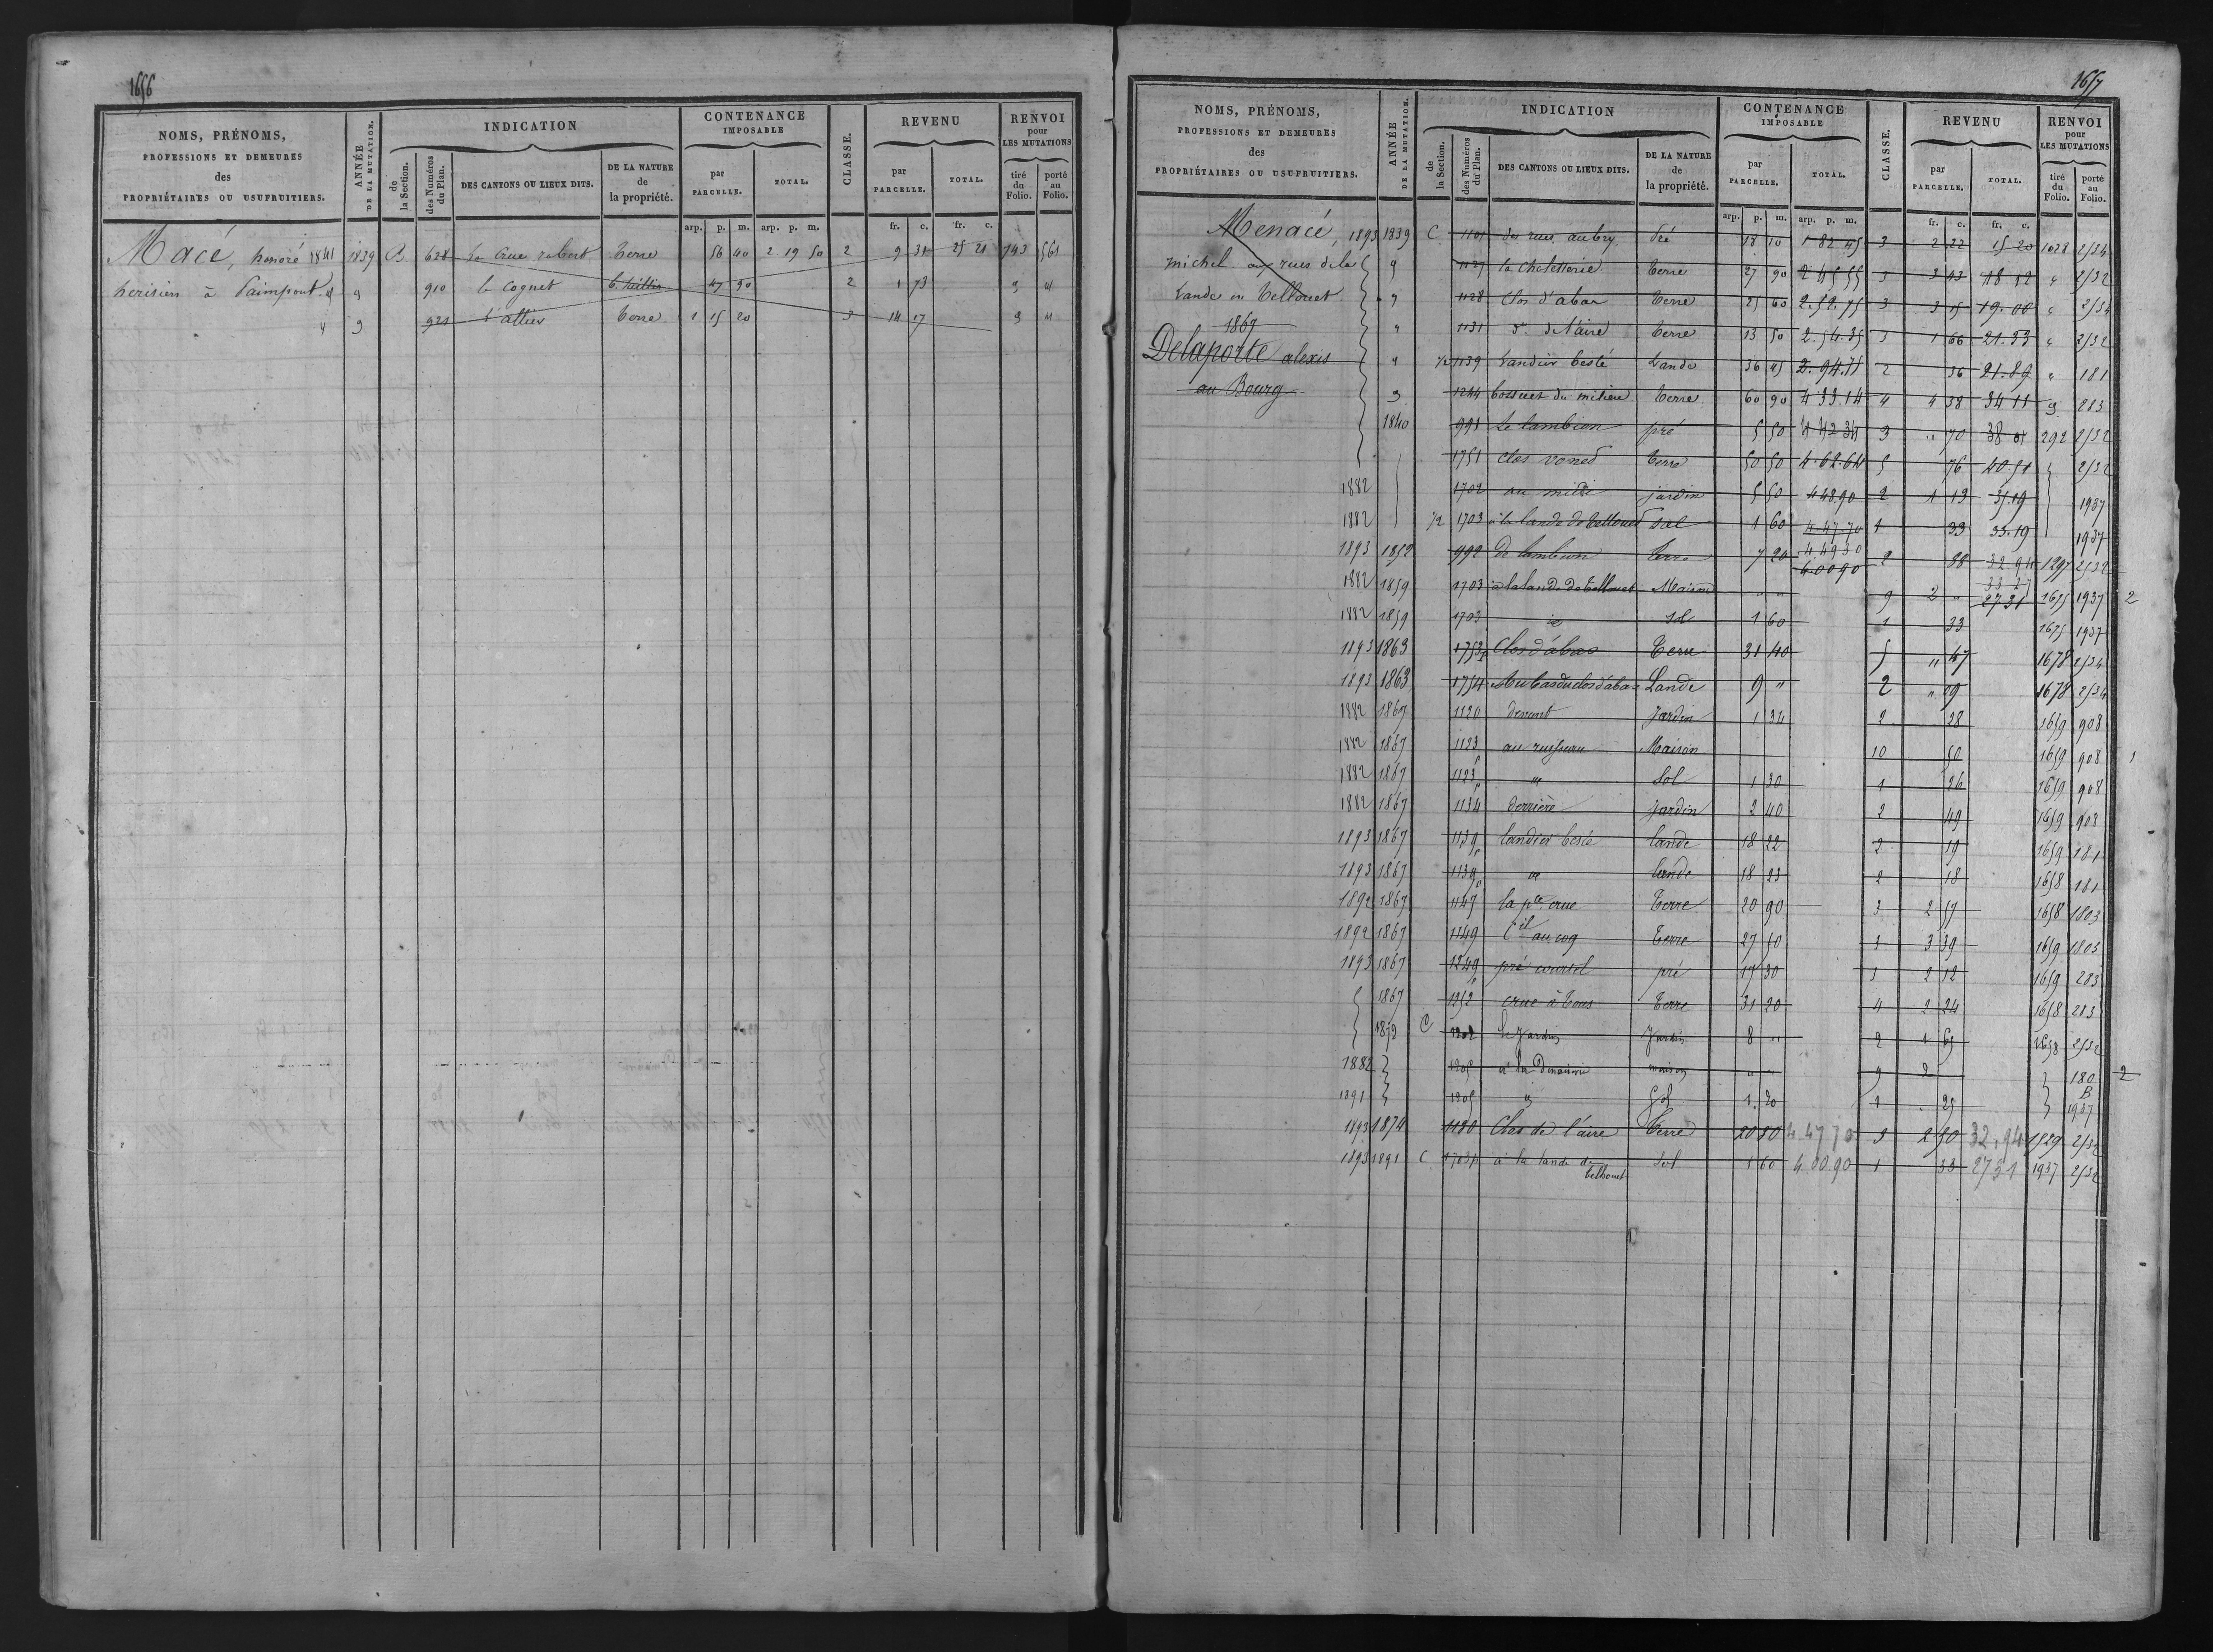 1656
NOMS, PRÉNOMS,
PROFESSIONS ET DEMEURES
des
PROPRIÉTAIRES OU USUFRUITIERS.
ANNÉE
DE LA MUTATION.
INDICATION
de
la Section.
des Numéros
du Plan.
DES CANTONS OU LIEUX DITS.
DE LA NATURE
de
la propriété.
CONTENANCE
IMPOSABLE
par
PARCELLE.
TOTAL.
CLASSE.
REVENU
par
PARCELLE.
TOTAL.
RENVOI
pour
LES MUTATIONS
tiré
du
Folio.
porté
au
Folio.
arp. p. m. arp. p. m. fr. c. fr. c.
Macé, honoré 1841 1839 B 628 La Crue robert Terre 56 40 2 19 50 2 9 31 25 21 743 561
herisiers à Paimpont 910 le Cognet 47 90 2 1 73
921 Terre 1 15 20 3 14 17
1657
NOMS, PRÉNOMS,
PROFESSIONS ET DEMEURES
des
PROPRIÉTAIRES OU USUFRUITIERS.
ANNÉE
DE LA MUTATION.
INDICATION
de
la Section.
des Numéros
du Plan.
DES CANTONS OU LIEUX DITS.
DE LA NATURE
de
la propriété.
CONTENANCE
IMPOSABLE
par
PARCELLE.
TOTAL.
CLASSE.
REVENU
par
PARCELLE.
TOTAL.
RENVOI
pour
LES MUTATIONS
tiré
du
Folio.
porté
au
Folio.
arp. p. m. arp. p. m. fr. c. fr. c.
Menacé, 1893 1839 C 1101 des rues aubry Pré 18 10 1 82 45 3 2 22 15 20 1028 2134
michel aux rues de la 1127 la Cheletterie Terre 27 90 2 45 55 3 3 43 18 52 " 2132
Lande en Tellouet 1128 Clos d'abas Terre 25 60 2.52.75 3 3 15 19.00 " 2134
1867 " 1131 d° de l'aire Terre 13 50 2.54.35 3 1 66 21.33 " 2132
Delaporte alexis " 1/2 1139 Landier besié Lande 36 45 2.94.75 2 36 21.89 " 181
au Bourg 1244 bossues du milieu Terre 60 90 4 33.14 4 4 38 34 11 283
1840 991 Le lambion pré 5 50 4 42 34 3 " 70 38 292 2132
1751 Clos Terre 50 50 4.62.64 5 76 40.51 2132
1882 1702 au midi jardin 5 50 4 48.90 2 1 13 35.19 1937
1882 1/2 1703 à la lande de Tellouet Sol 1 60 4.47.70 1 33 33.19 1937
1893 1852 992 Le lambion Terre 7 20 4.49 30 2 88 32.94 1297 2132
4.00 90 33 27
1882 1859 1703 à la lande de Tellouet Maison " " 9 2 " 27 31 1675 1937 2
1882 1859 1703 id Sol 1 60 1 33 1675 1937
1893 1863 1753 p Clos d'abas Terre 31 40 5 " 47 1678 2134
1893 1863 1754 Au bas du clos d'abas Lande 9 " 2 " 09 1678 2134
1882 1867 1120 devant Jardin 1 34 2 28 1659 908
1882 1867 1123 au ruisseau Maison 10 50 1659 908 1
1882 1867 1123 p " Sol 1 30 1 26 1659 908
1882 1867 1134 p derrière Jardin 2 40 2 49 1659 908
1893 1867 1139 p landier besié lande 18 22 2 19 1659 181
1893 1867 1139 p " lande 18 23 2 18 1658 181
1892 1867 1147 la pte crue Terre 20 90 3 2 57 1658 1803
1892 1867 1149 Ctil au coq Terre 27 50 3 3 39 1659 1803
1893 1867 1249 p pré courtil pré 17 30 3 2 12 1659 283
1867 1252 crue à Tous Terre 31 20 4 2 24 1658 283
1872 C 1202 Le Jardin Jardin 8 " 2 1 65 1658 2132
1882 1205 à la maison " " 9 2 180 2
1891 1205 " Sol 1.20 1 . 25 B 1937
1893 1874 1130 Clos de l'aire Terre 20 80 4.47 70 3 2 50 32,94 1529 2132
1893 1891 C 1703 p à la lande de Sol 1 60 4.00.90 1 33 2731 1937 2132
telhouet